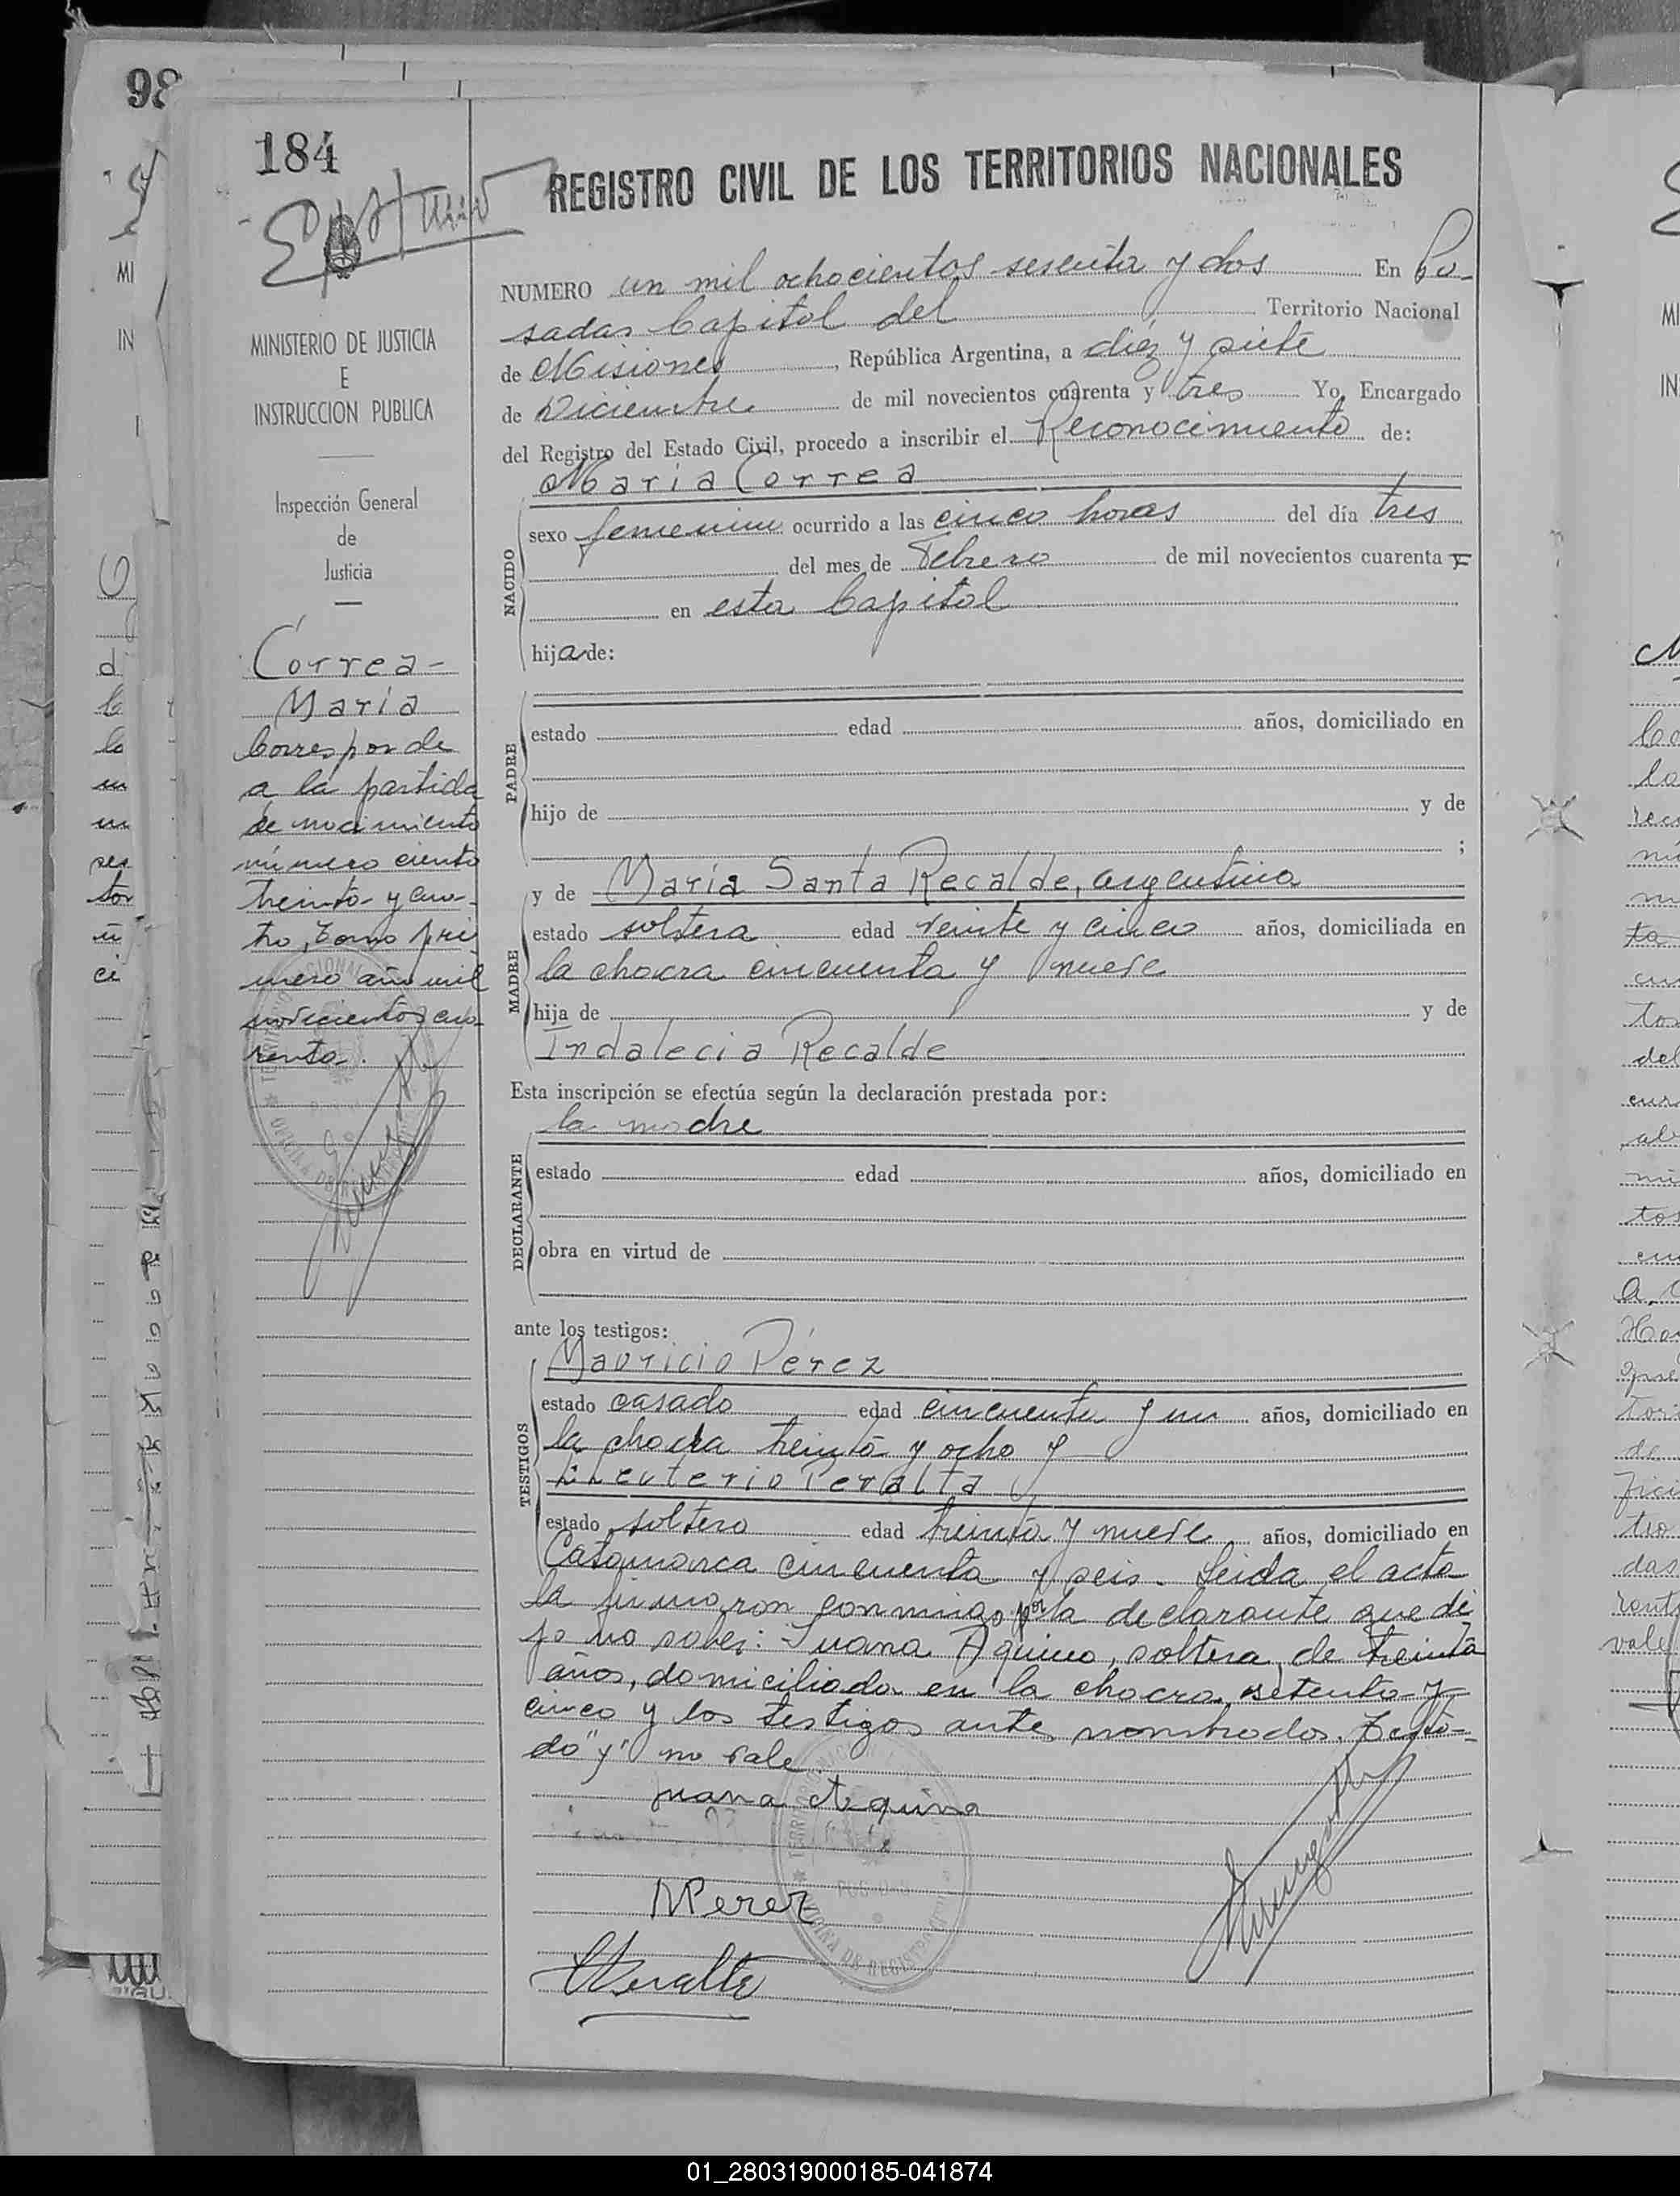 98
184
REGISTRO CIVIL DE LOS TERRITORIOS NACIONALES
MINISTERIO DE JUSTICIA
E
INSTRUCCION PUBLICA
Inspección General
de
Justicia
Correa-
María
Corresponde
a la partida
de nacimiento
número ciento
treinta y cua-
tro, tomo pri
mero año mil
novecientos cua-
renta.
NUMERO un mil ochocientos sesenta y dos En Po-
sadas Capital del Territorio Nacional
de Misiones, República Argentina, a diez y siete
de Diciembre de mil novecientos cuarenta y tres Yo, Encargado
del Registro del Estado Civil, procedo a inscribir el Reconocimiento de:
María Correa
NACIDO
sexo femenino ocurrido a las cinco horas del día tres
del mes de Febrero de mil novecientos cuarenta y
en esta Capital
hija de:
PADRE
estado edad años, domiciliado en
hijo de y de
;
MADRE
y de María Santa Recalde, argentina
estado soltera edad veinte y cinco años, domiciliada en
la chacra cincuenta y nueve
hija de y de
Indalecia Recalde
Esta inscripción se efectúa según la declaración prestada por:
la madre
DECLARANTE
estado edad años, domiciliado en
obra en virtud de
ante los testigos:
TESTIGOS
Mauricio Pérez
estado casado edad cincuenta y un años, domiciliado en
la chacra treinta y ocho y
Eleuterio Peralta
estado soltero edad treinta y nueve años, domiciliado en
Catamarca cincuenta y seis. Leida el acta
la firmaron conmigo por la declarante que di
jo no saber: Juana Aquino, soltera, de treinta
años, domiciliada en la chacra setenta y
cinco y los testigos antes nombrados. Testa-
do "y" no vale.
Juana Aquino
MPerez
EPeralta
01_280319000185-041874